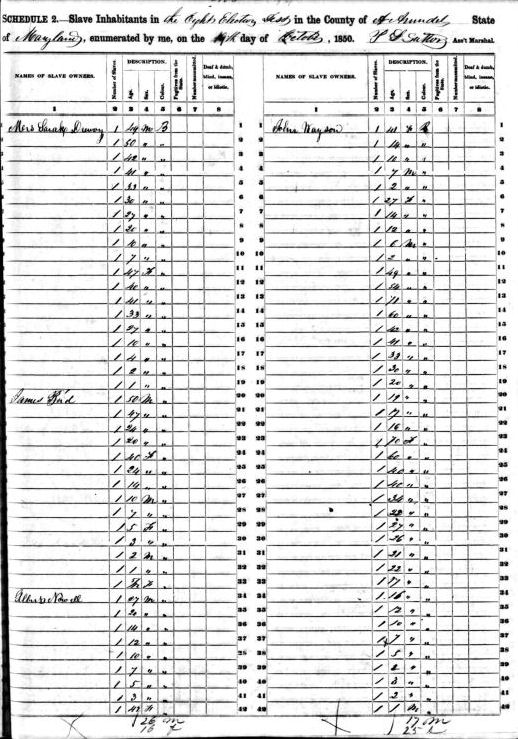 SCHEDULE 2.—Slave Inhabitants in the Eight Election Dist in the County of A Arundel State
of Maryland, enumerated by me, on the day of October, 1850. Ass't Marshal.
NAMES OF SLAVE OWNERS.
Number of Slaves.
DESCRIPTION.
Age.
Sex.
Colour.
Fugitives from the State.
Number manumitted.
Deaf & dumb, blind, insane, or idiotic.
1 2 3 4 5 6 7 8
NAMES OF SLAVE OWNERS.
Number of Slaves.
DESCRIPTION.
Age.
Sex.
Colour.
Fugitives from the State.
Number manumitted.
Deaf & dumb, blind, insane, or idiotic.
1 2 3 4 5 6 7 8
Mrs Sarah 1 49 m B 1
1 50 " " 2
1 42 " " 3
1 41 " " 4
1 33 " " 5
1 30 " " 6
1 27 " " 7
1 20 " " 8
1 10 " " 9
1 7 " " 10
1 47 F " 11
1 40 " " 12
1 41 " " 13
1 33 " " 14
1 27 " " 15
1 10 " " 16
1 4 " " 17
1 2 " " 18
1 1 " " 19
James Bird 1 50 M " 20
1 47 " " 21
1 24 " " 22
1 20 " " 23
1 40 F " 24
1 24 " " 25
1 14 " " 26
1 10 M " 27
1 7 " " 28
1 5 F " 29
1 3 " " 30
1 2 M " 31
1 1 " " 32
1 F " 33
Nowell 1 27 M " 34
1 20 " " 35
1 14 " " 36
1 12 " " 37
1 10 " " 38
1 7 " " 39
1 5 " " 40
1 3 " " 41
1 42 F " 42
26 m
16 f
John Wayson 1 41 F B 1
1 14 " " 2
1 10 " " 3
1 7 M " 4
1 2 " " 5
1 27 F " 6
1 14 " " 7
1 12 " " 8
1 6 M " 9
1 2 " " 10
1 49 " " 11
1 54 " " 12
1 71 " " 13
1 60 " " 14
1 42 " " 15
1 41 " " 16
1 33 " " 17
1 30 " " 18
1 20 " " 19
1 19 " " 20
1 17 " " 21
1 16 " " 22
1 70 F " 23
1 60 " " 24
1 40 " " 25
1 40 " " 26
1 34 " " 27
1 " " 28
1 27 " " 29
1 26 " " 30
1 21 " " 31
1 22 " " 32
1 17 " " 33
1 16 " " 34
1 12 " " 35
1 10 " " 36
1 7 " " 37
1 5 " " 38
1 " " 39
1 3 " " 40
1 2 " " 41
1 1 M " 42
17 m
25 f